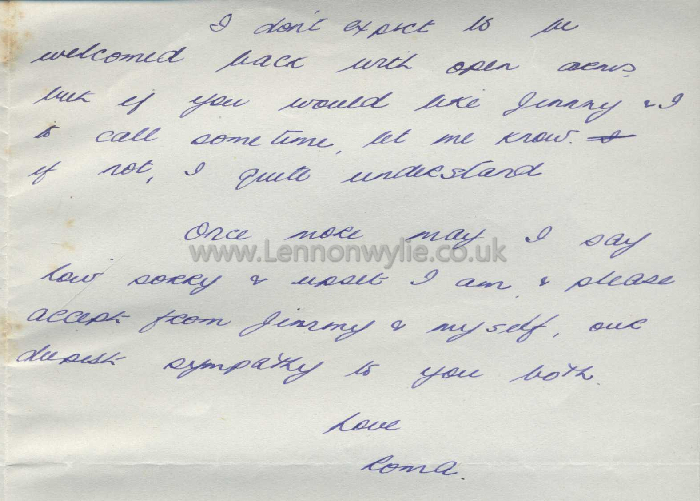 I don't expect to be
welcomed back with open arms
but if you would like Jimmy & I
to call sometime, let me know. I
if not, I quite understand
Once more may I say
www.Lennonwylie.co.uk
how sorry & upset I am, & please
accept from Jimmy & myself, our
deepest sympathy to you both.
Love
Roma.